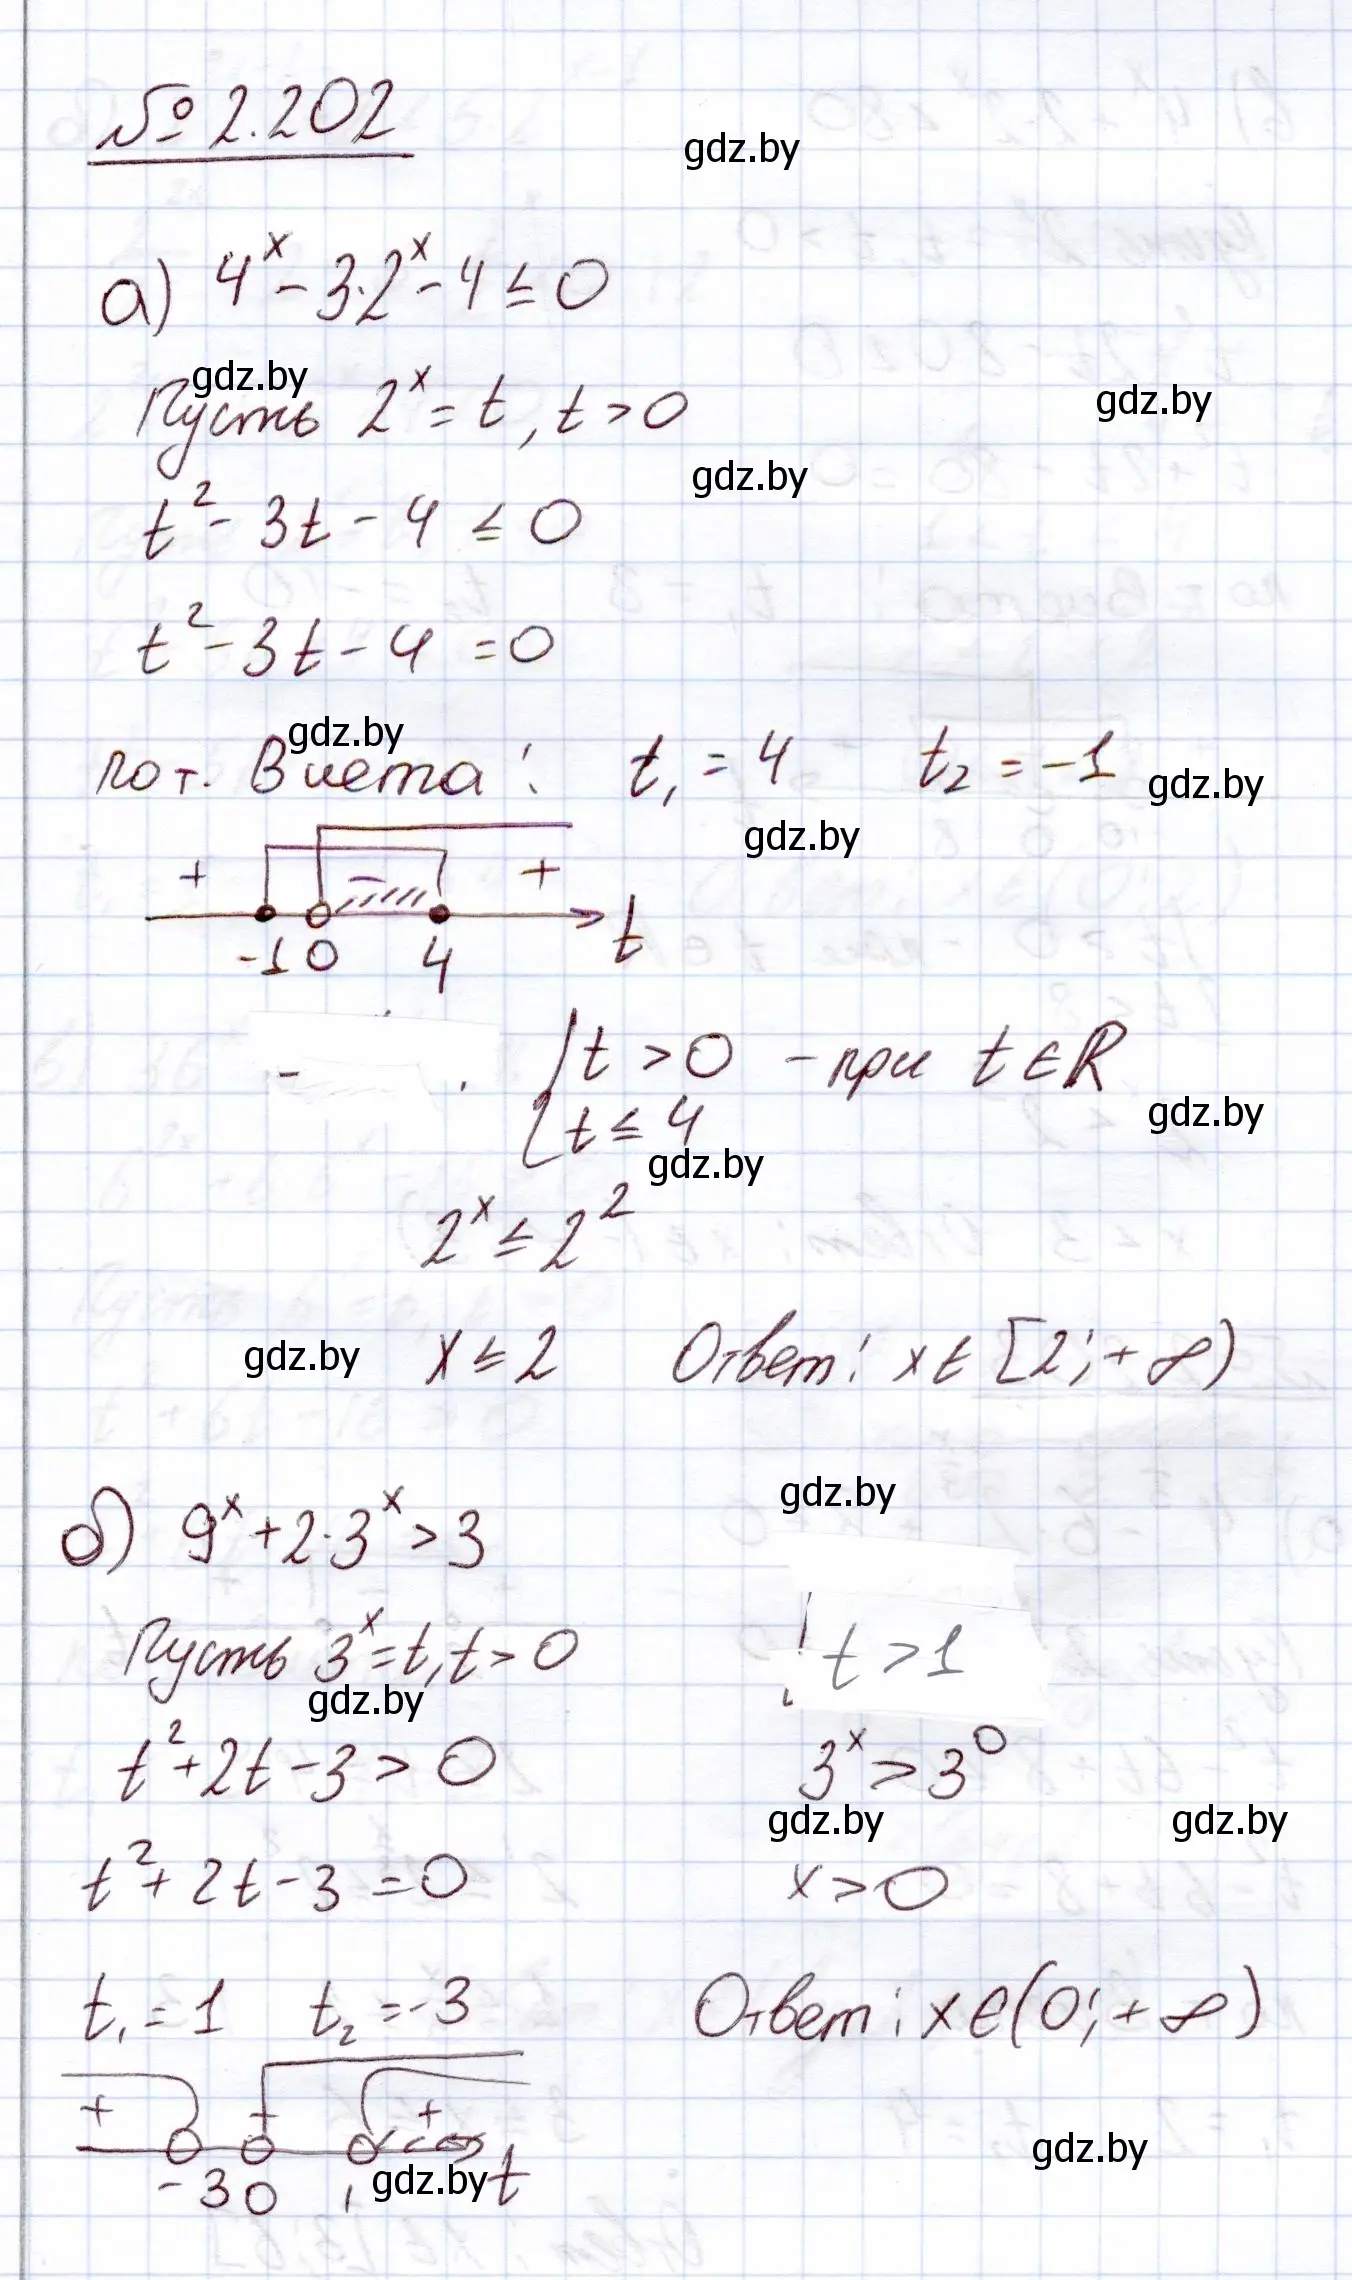 № 2.202
gdz.by
а) 4ˣ - 3·2ˣ - 4 ≤ 0
gdz.by
Пусть 2ˣ = t, t > 0
gdz.by
gdz.by
t² - 3t - 4 ≤ 0
t² - 3t - 4 = 0
gdz.by
по т. Виета: t₁ = 4 t₂ = -1
gdz.by
gdz.by
+ - +
-1 0 4 t
{ t > 0 - при t ∈ R
t ≤ 4
gdz.by
gdz.by
2ˣ ≤ 2²
gdz.by x ≤ 2 Ответ: x ∈ [2; +∞)
gdz.by
б) 9ˣ + 2·3ˣ > 3
Пусть 3ˣ = t, t > 0
gdz.by
t² + 2t - 3 > 0
t² + 2t - 3 = 0
t₁ = 1 t₂ = -3
+ - +
-3 0 1 t
gdz.by
t > 1
3ˣ > 3⁰
gdz.by
gdz.by
x > 0
Ответ: x ∈ (0; +∞)
gdz.by